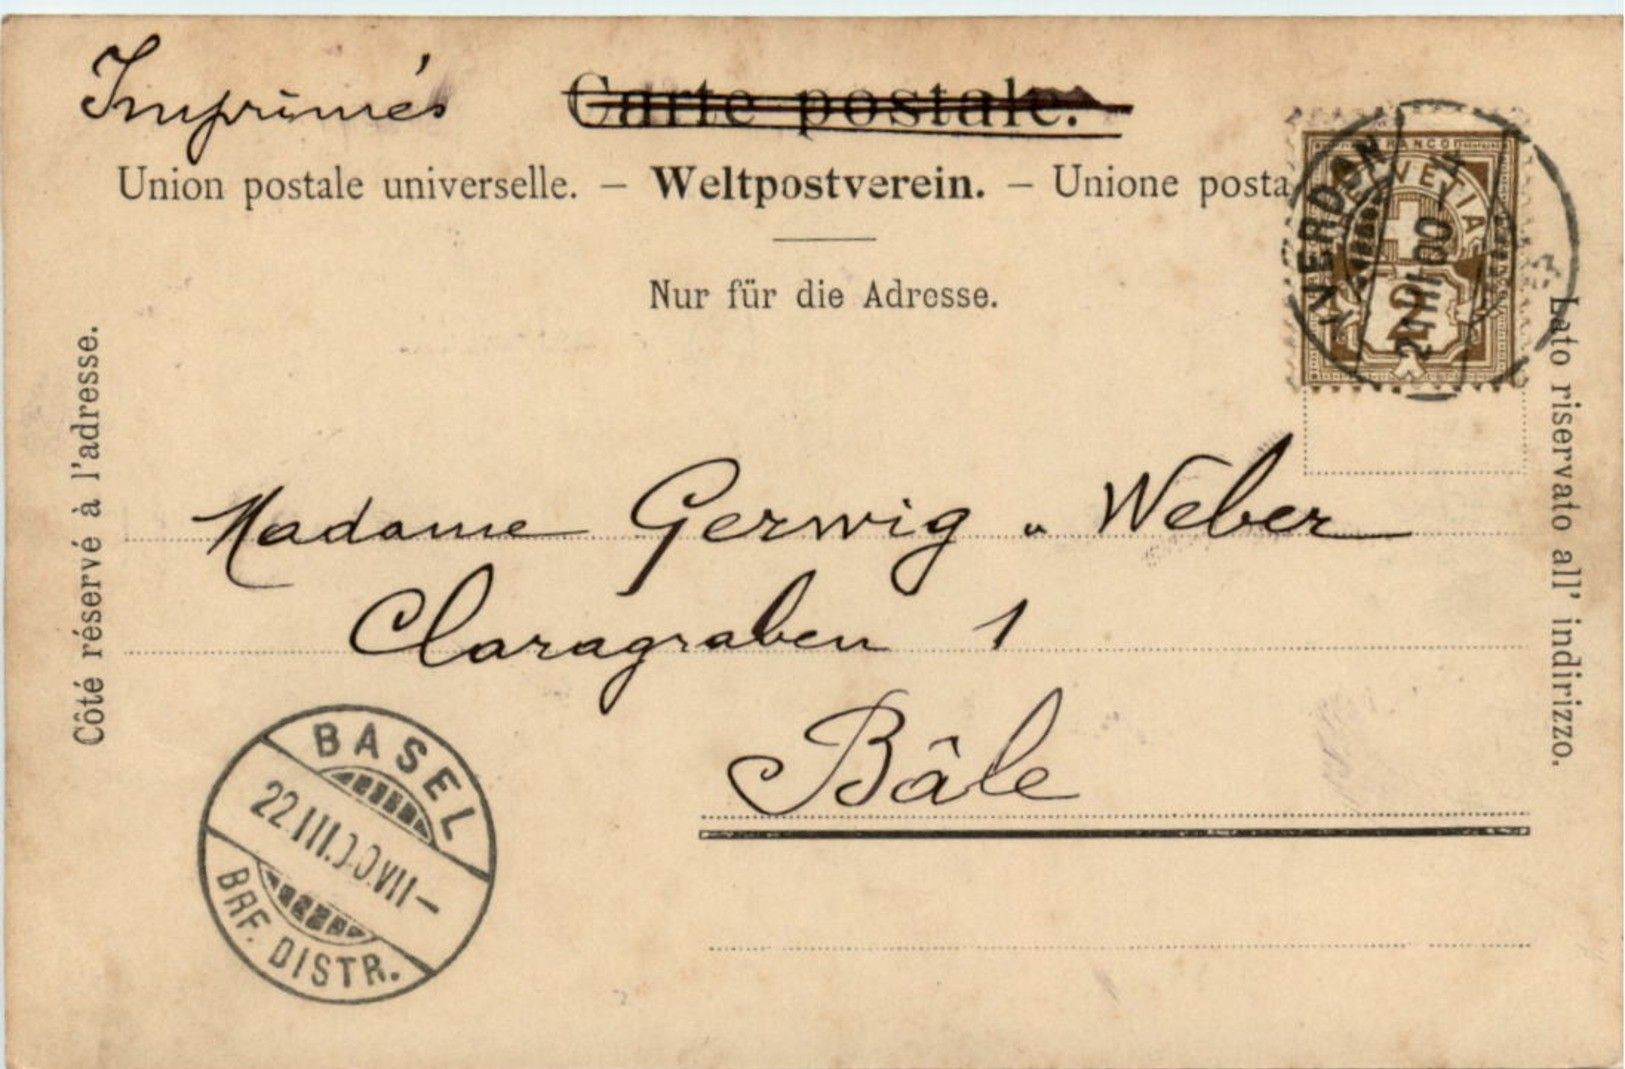 Imprimés
Carte postale.
Union postale universelle. – Weltpostverein. – Unione posta
Nur für die Adresse.
Côté réservé à l'adresse.
Lato riservato all' indirizzo.
FRANCO
HELVETIA
2
YVERDON
III.00
Madame Gerwig u Weber
Claragraben 1
Bâle
BASEL
22.III.00.VII–
BRF. DISTR.